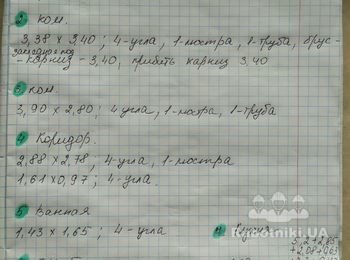 2 ком.
3,38 х 3,40; 4-угла, 1-люстра, 1-труба, брус-
закладной под
- карниз - 3,40, прибить карниз 3.40
3 ком
3,90 х 2,80; 4 угла, 1-люстра, 1-труба
4 Коридор.
2,88 х 2,78; 4-угла, 1-люстра
1,61 х 0,97; 4-угла.
5 Ванная
1,43 х 1,65; 4-угла
Кухня
5,2+2,85
+2,08+0,63
Rabotniki.UA